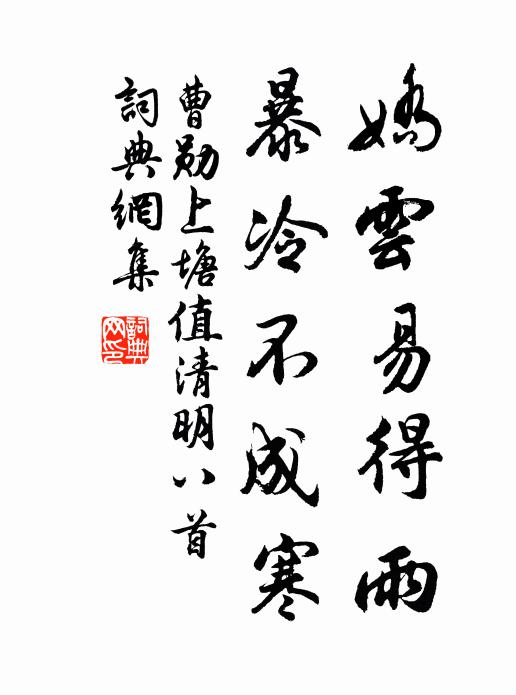 嬌雲易得雨
暴冷不成寒
曹勛上塘值清明八首
詞典網集
詞典網印